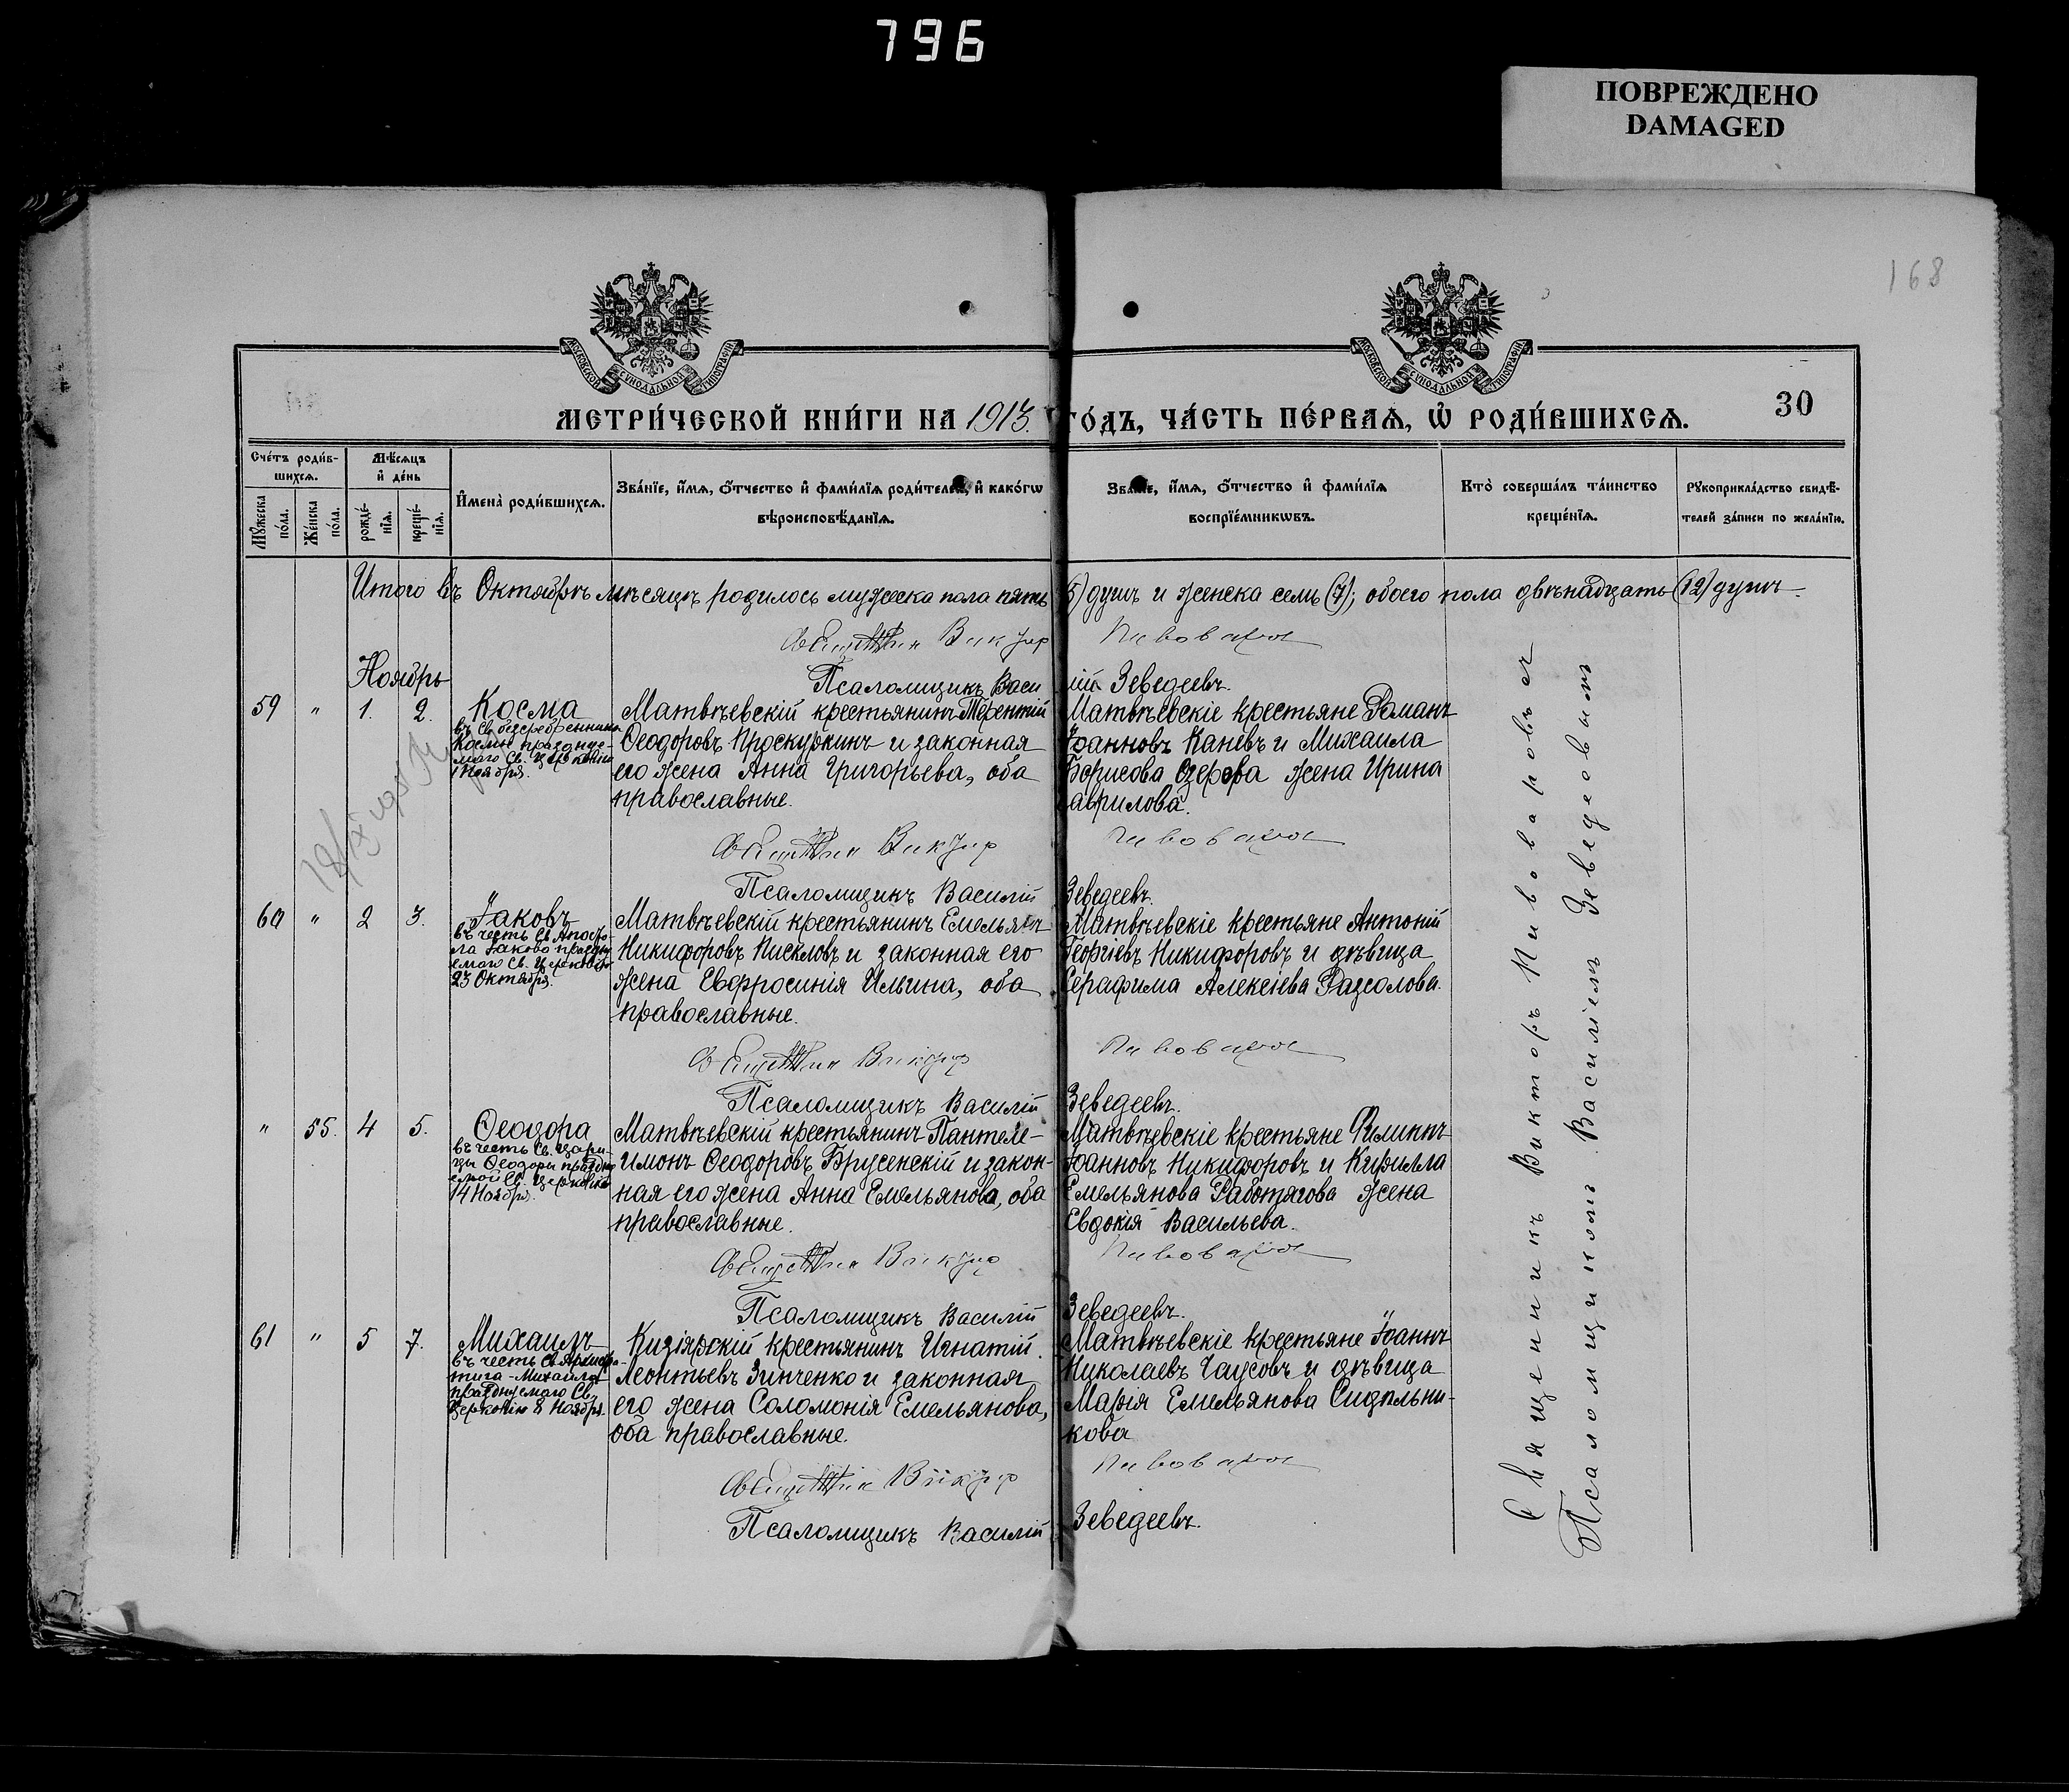 796
ПОВРЕЖДЕНО
DAMAGED
168
МОСКОВСКОЙ СѴНОДАЛЬНОЙ ТИПОГРАФІИ
МОСКОВСКОЙ СѴНОДАЛЬНОЙ ТИПОГРАФІИ
30
МЕТРИ́ЧЕСКОЙ КНИ́ГИ НА 1913. ГО́ДЪ, ЧА́СТЬ ПЕ́РВАѦ, Ѽ РОДИ́ВШИХСѦ.
Сче́тъ роди́в-
шихсѧ.
Мѣ́сѧцъ
и҆ де́нь
Мꙋ́жеска
по́ла.
Же́нска
по́ла.
рожде́-
нїѧ.
креще́-
нїѧ.
И҆мена̀ роди́вшихсѧ.
Зва́нїе, и҆́мѧ, ѻ҆́тчество и҆ фами́лїѧ роди́телей, и҆ како́гѡ
вѣроисповѣ́данїѧ.
Зва́нїе, и҆́мѧ, ѻ҆́тчество и҆ фами́лїѧ
воспрїе́мникѡвъ.
Кто̀ соверша́лъ та́инство
креще́нїѧ.
Рꙋкоприкла́дство свидѣ́-
телей за́писи по жела́нїю.
Итого въ Октябрѣ мѣсяцѣ родилось мужеска пола пять (5) душъ и женска семь (7); обоего пола двѣнадцать (12) душъ.
Священник Виктор Пивоваров
Псаломщикъ Василій Зеведеевъ.
Ноябрь
59 " 1. 2. Косма
въ Св. безсребренника
Космы праздnуе-
маго Св. церковію
1 Ноября.
Матвѣевскій крестьянинъ Терентій
Ѳеодоровъ Проскуркинъ и законная
его жена Анна Григорьева, оба
православные.
Матвѣевскіе крестьяне Романъ
Іоанновъ Каневъ и Михаила
Борисова Озерова жена Ирина
Гаврилова.
Священник Виктор Пивоваров
Псаломщикъ Василій Зеведеевъ.
60 " 2 3. Іаковъ
въ честь Св. Апосто-
ла Іакова праздну-
емаго Св. Церковію
23 Октября.
Матвѣевскій крестьянинъ Емельянъ
Никифоровъ Писклов и законная его
жена Евфросинія Ильина, оба
православные.
Матвѣевскіе крестьяне Антоній
Георгіевъ Никифоровъ и дѣвица
Серафима Алексіева
Священник Виктор Пивоваров
Псаломщикъ Василій Зеведеевъ.
" 55. 4 5. Ѳеодора
въ честь Св. Цари-
цы Ѳеодоры праздну
емой Св. Церковію
14 Ноября.
Матвѣевскій крестьянинъ Пантеле-
имонъ Ѳеодоровъ Брусенскій и закон-
ная его жена Анна Емельянова, оба
православные.
Матвѣевскіе крестьяне Филиппъ
Іоанновъ Никифоровъ и Кирилла
Емельянова Работягова жена
Евдокія Васильева.
Священник Виктор Пивоваров
Псаломщикъ Василій Зеведеевъ.
61 " 5 7. Михаилъ
въ честь Св. Архистра-
тига Михаила
празднуемаго Св.
Церковію 8 Ноября.
Кизіярскій крестьянинъ Игнатій
Леонтьевъ Зинченко и законная
его жена Соломонія Емельянова,
оба православные.
Матвѣевскіе крестьяне Іоаннъ
Николаевъ Чаусовъ и дѣвица
Марія Емельянова Сидельни-
кова
Священник Виктор Пивоваров
Псаломщикъ Василій Зеведеевъ.
Священникъ Викторъ Пивоваровъ съ
Псаломщикомъ Василіемъ Зеведеевымъ